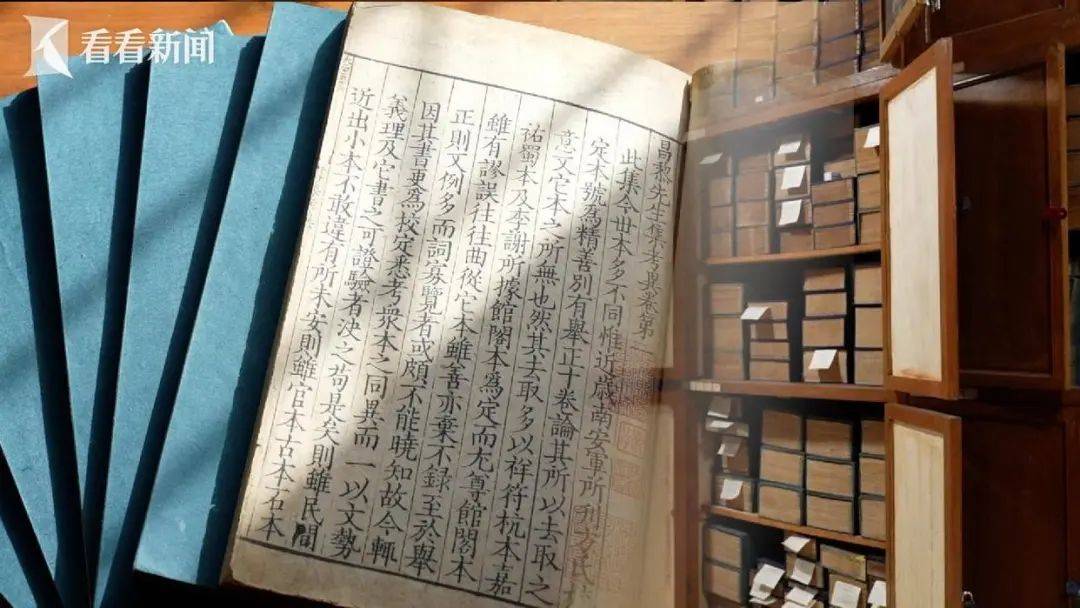 看看新闻
昌黎先生集考異卷第一
此集今世本多不同惟近歲南安軍所刊方氏
定本號為精善別有舉正十卷論其所以去取之
意又它本之所無也然其去取多以祥符杭本嘉
祐蜀本及李謝所據館閣本為定而尤尊館閣本
雖有謬誤往往曲從它本雖善亦棄不錄至於舉
正則又例多而詞寡覽者或頗不能曉知故今輒
因其書更為校定悉考衆本之同異而一以文勢
義理及它書之可證驗者決之苟是矣則雖民間
近出小本不敢違有所未安則雖官本古本石本